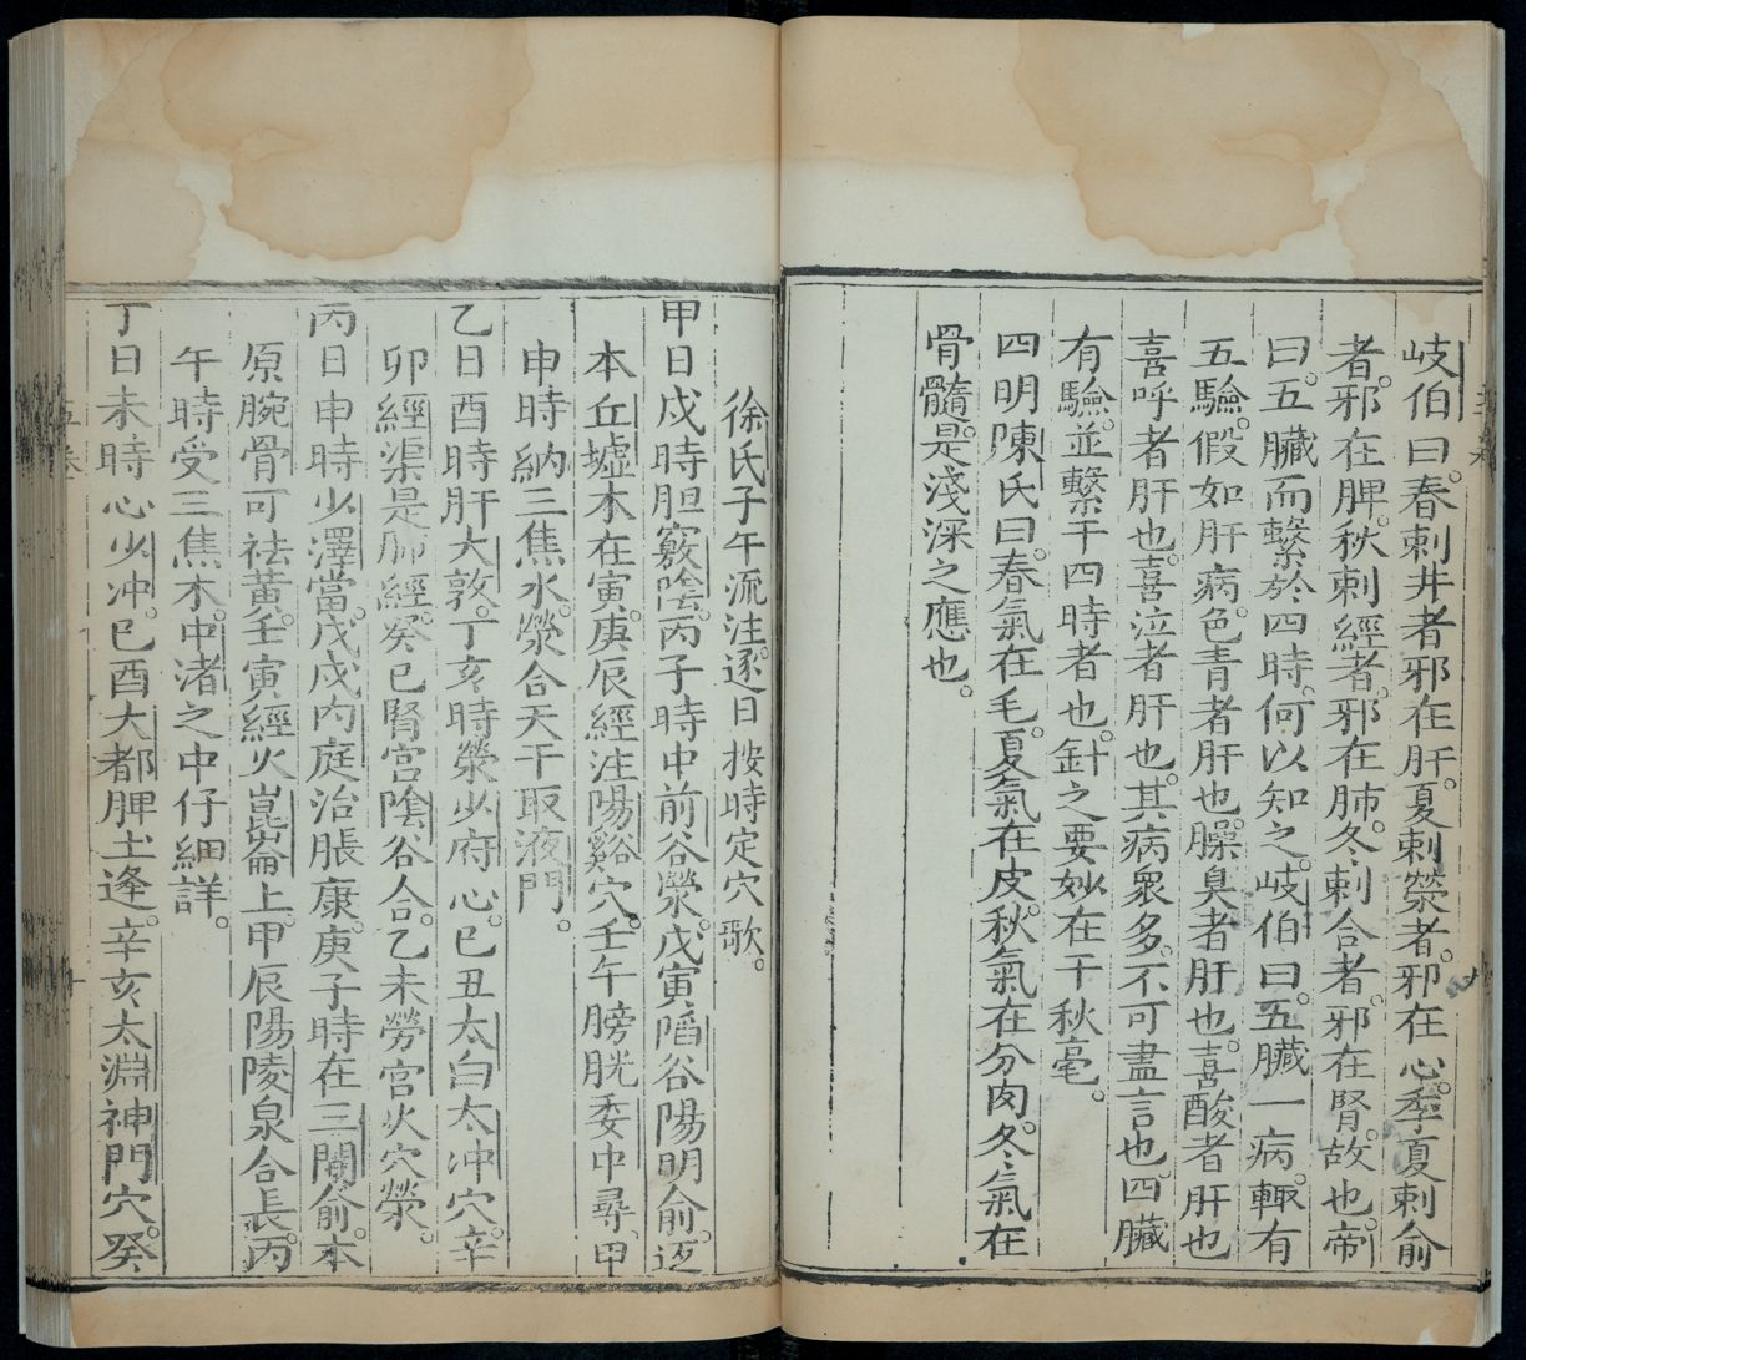 岐伯曰。春刺井者邪在肝。夏刺滎者。邪在心。季夏刺俞
者。邪在脾。秋刺經者。邪在肺。冬刺合者。邪在腎。故也。帝
曰。五臟而繫於四時。何以知之。岐伯曰。五臟一病。輙有
五驗。假如肝病。色青者肝也。臊臭者肝也。喜酸者肝也
喜呼者肝也。喜泣者肝也。其病衆多。不可盡言也。四臟
有驗。並繫干四時者也。針之要妙在干秋毫。
四明陳氏曰。春氣在毛。夏氣在皮。秋氣在分肉。冬氣在
骨髓。是淺深之應也。
徐氏子午流注。逐日按時定穴歌。
甲日戍時胆竅陰。丙子時中前谷滎。戊寅䧟谷陽明俞。返
本丘墟木在寅。庚辰經注陽谿穴。壬午膀胱委中尋。甲
申時納三焦水。滎合天干取液門。
乙日酉時肝大敦。丁亥時滎少府心。巳丑太白太冲穴。辛
卯經渠是肺經。癸巳腎宮陰谷合。乙未勞宮火穴滎。
丙日申時少澤當。戊戍內庭治脹康。庚子時在三間俞。本
原腕骨可祛黃。壬寅經火崑崙上。甲辰陽陵泉合長。丙
午時受三焦木。中渚之中仔細詳。
丁日未時心少冲。巳酉大都脾土逢。辛亥太淵神門穴。癸